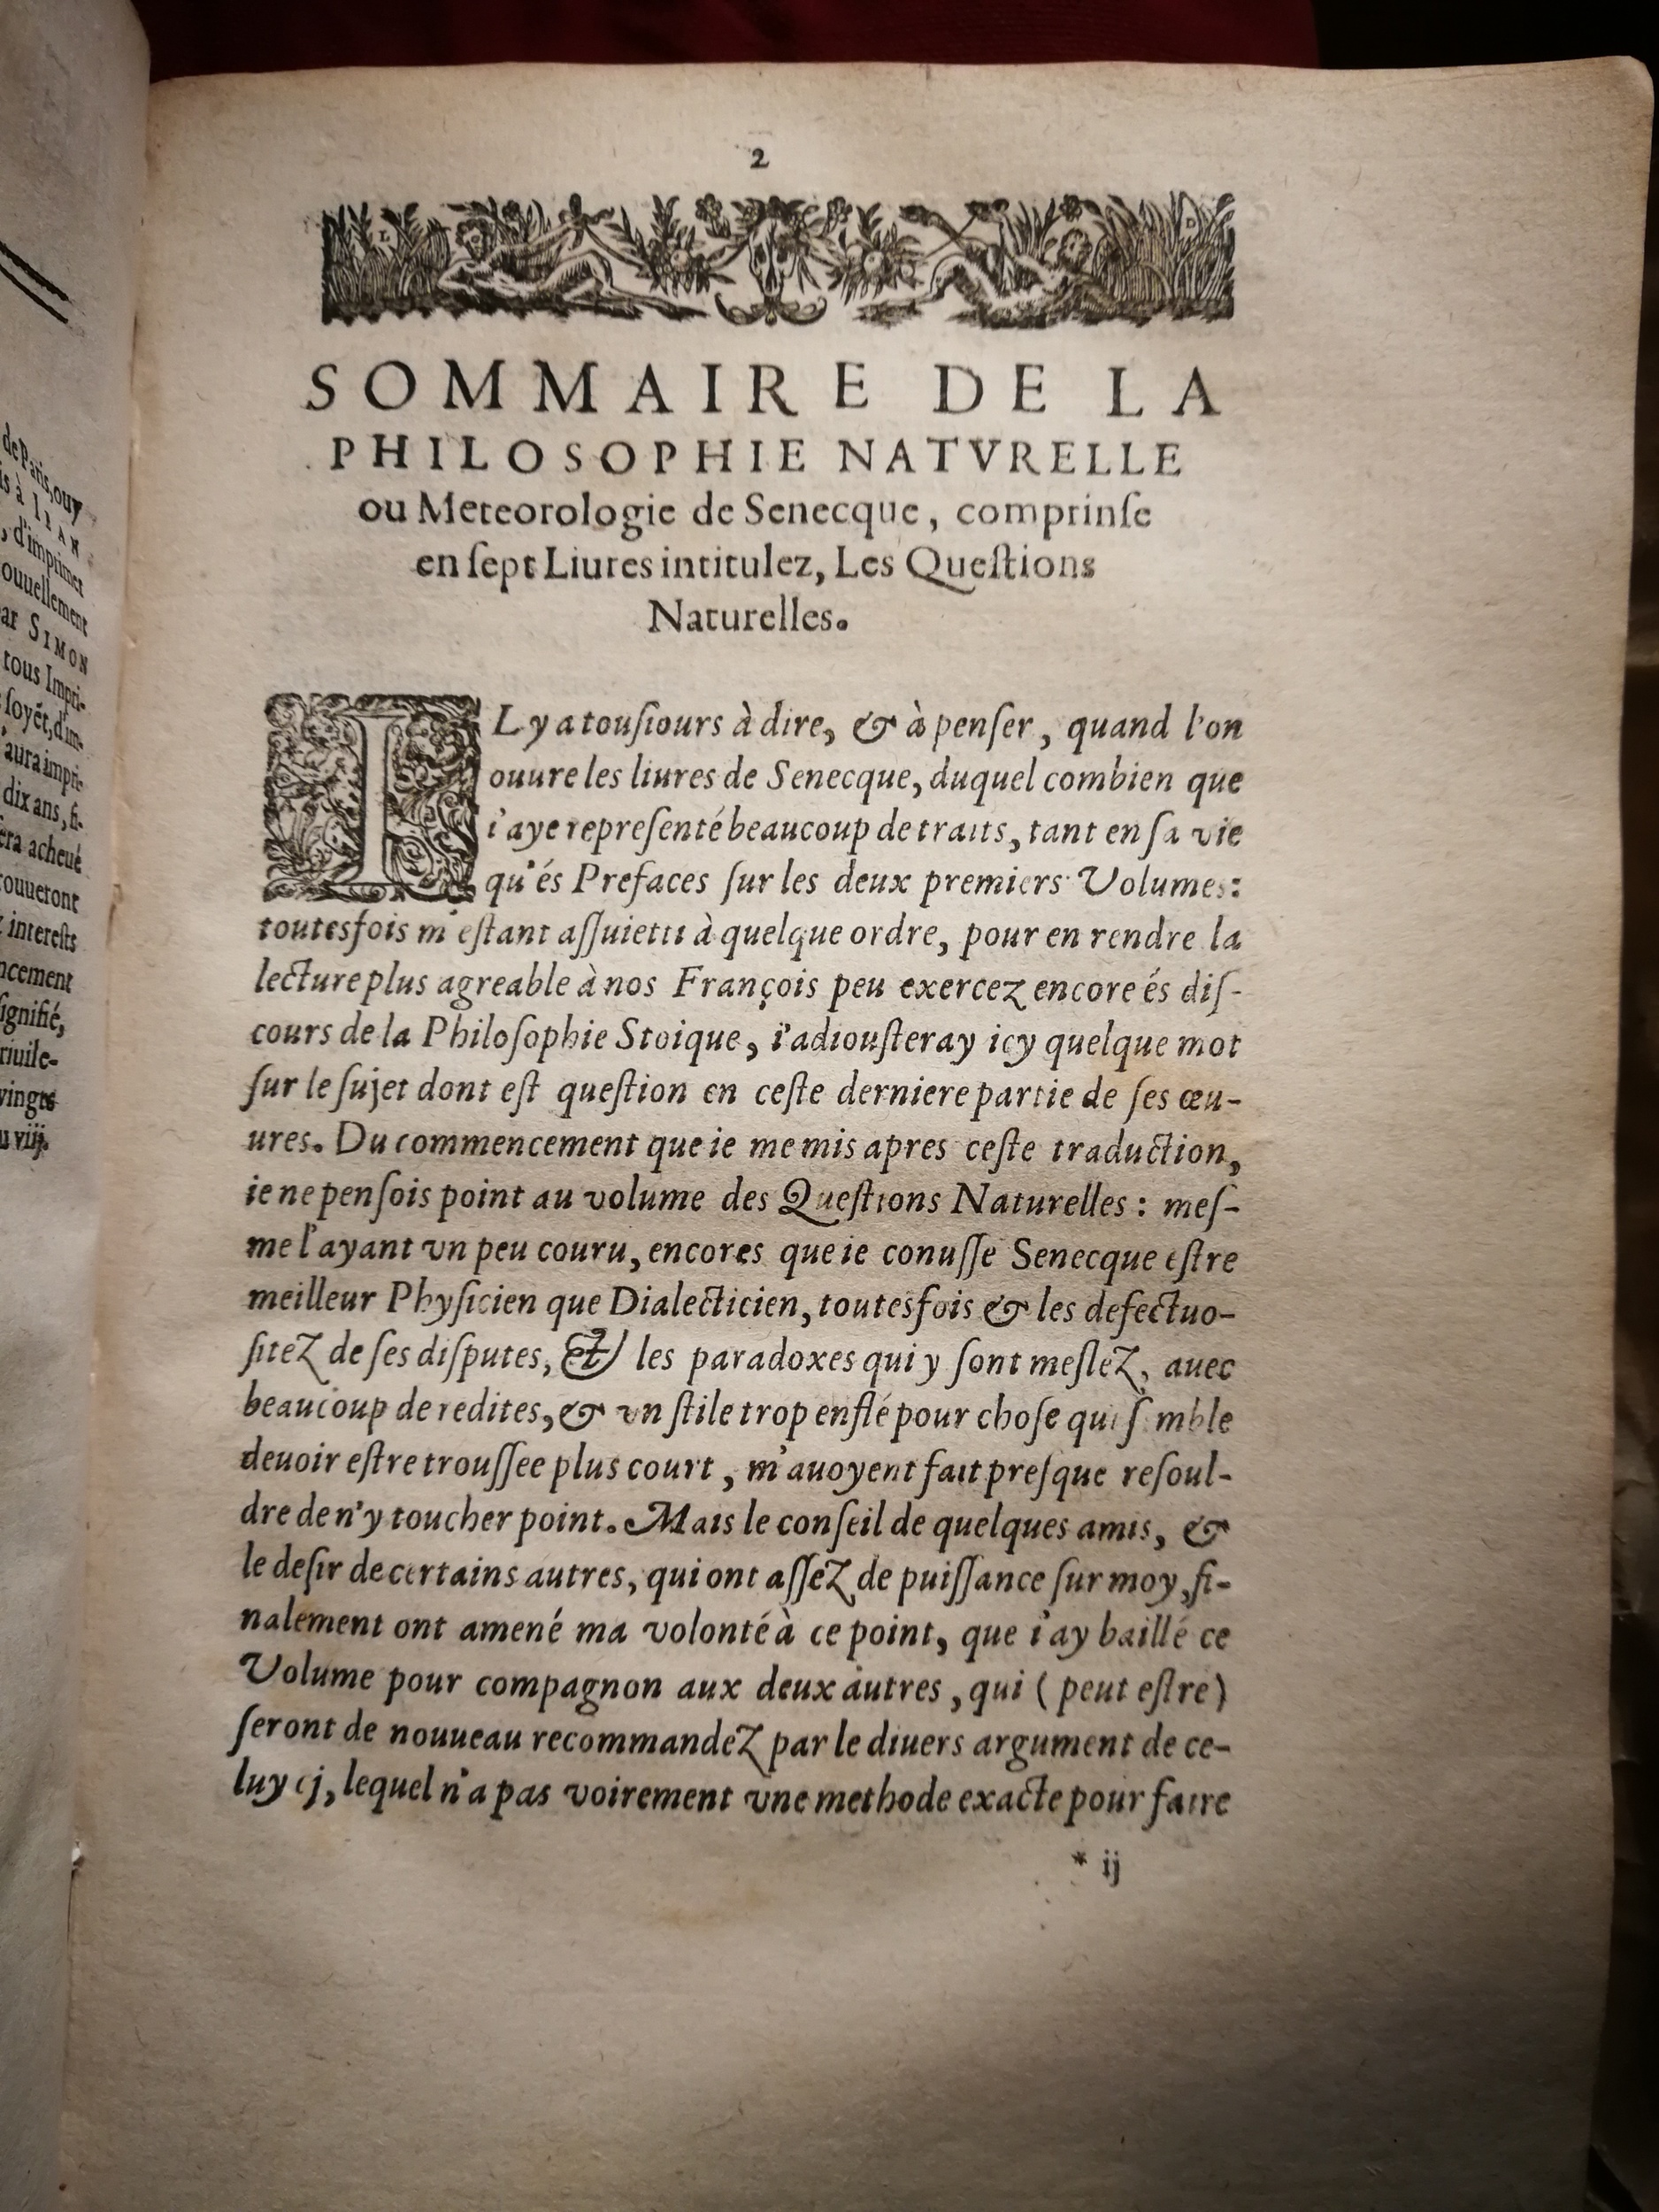 de Paris, ouy
is à IEAN
, d'imprimer
ouuellement
par SIMON
tous Impri-
soyẽt, d'im-
'aura impri-
dix ans, fi-
era acheué
rouueront
interests
ncement
signifié,
riuile-
vingts
u viij.
2
SOMMAIRE DE LA
PHILOSOPHIE NATVRELLE
ou Meteorologie de Senecque, comprinſe
en ſept Liures intitulez, Les Queſtions
Naturelles.
IL y a touſiours à dire, & à penſer, quand l'on
ouure les liures de Senecque, duquel combien que
i'aye repreſenté beaucoup de traits, tant en ſa vie
qu'és Prefaces ſur les deux premiers Volumes:
toutesfois m'eſtant aſſuietti à quelque ordre, pour en rendre la
lecture plus agreable à nos François peu exercez encore és diſ-
cours de la Philoſophie Stoique, i'adiouſteray icy quelque mot
ſur le ſujet dont eſt queſtion en ceſte derniere partie de ſes œu-
ures. Du commencement que ie me mis apres ceſte traduction,
ie ne penſois point au volume des Queſtions Naturelles: meſ-
me l'ayant vn peu couru, encores que ie conuſſe Senecque eſtre
meilleur Phyſicien que Dialecticien, toutesfois & les defectuo-
ſitez de ſes diſputes, & les paradoxes qui y ſont meſlez, auec
beaucoup de redites, & vn ſtile trop enflé pour choſe qui ſ mble
deuoir eſtre trouſſee plus court, m'auoyent fait preſque reſoul-
dre de n'y toucher point. Mais le conſeil de quelques amis, &
le deſir de certains autres, qui ont aſſez de puiſſance ſur moy, fi-
nalement ont amené ma volonté à ce point, que i'ay baillé ce
Volume pour compagnon aux deux autres, qui (peut eſtre)
ſeront de nouueau recommandez par le diuers argument de ce-
luy cj, lequel n'a pas voirement vne methode exacte pour faire
* ij